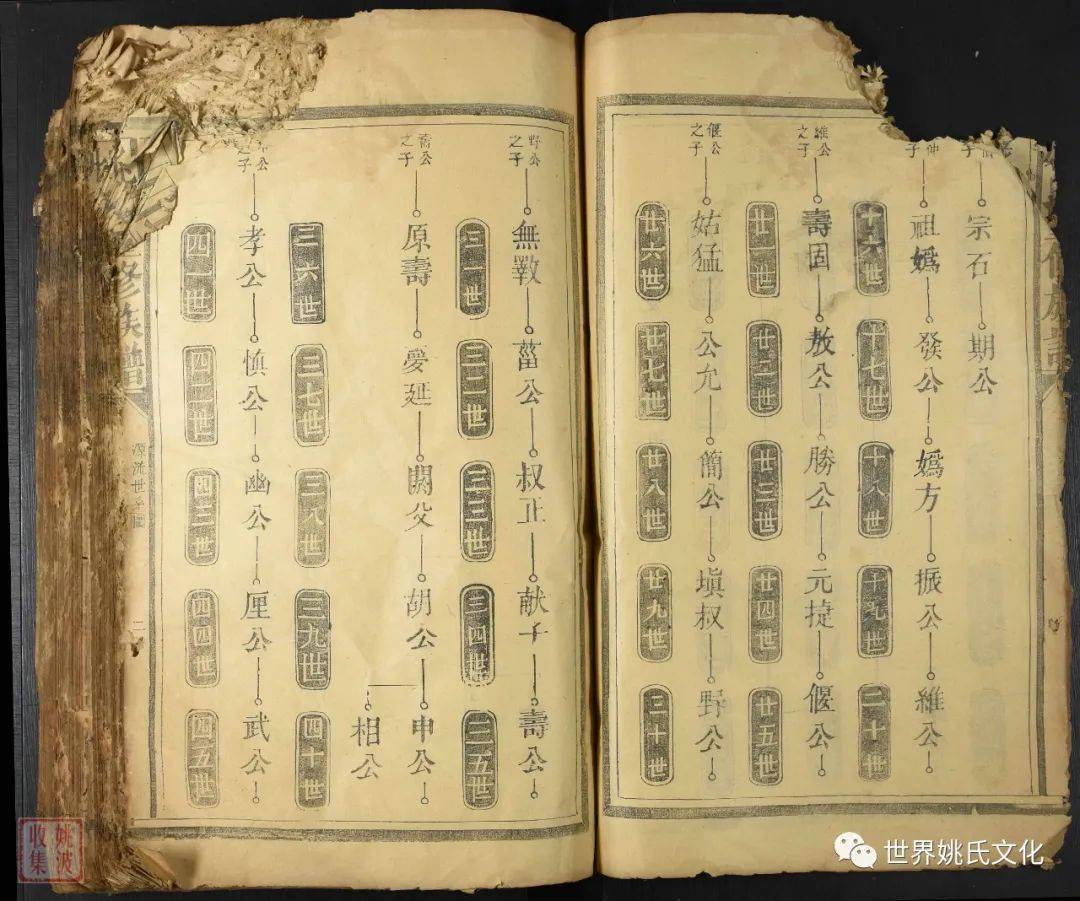 宗石
期公
十六世
十七世
十八世
十九世
二十世
祖媯
發公
媯方
振公
維公
廿一世
廿二世
廿三世
廿四世
廿五世
維公之子
壽固
敖公
勝公
元捷
偃公
廿六世
廿七世
廿八世
廿九世
三十世
偃公之子
姑猛
公允
簡公
塡叔
野公
三一世
三二世
三三世
三四世
三五世
野公之子
無斁
菑公
叔正
献子
壽公
三六世
三七世
三八世
三九世
四十世
壽公之子
原壽
夢延
閼父
胡公
申公
相公
四一世
四二世
四三世
四四世
四五世
公之子
孝公
慎公
幽公
厘公
武公
修族譜
源流世系圖
二
姚波
收集
世界姚氏文化